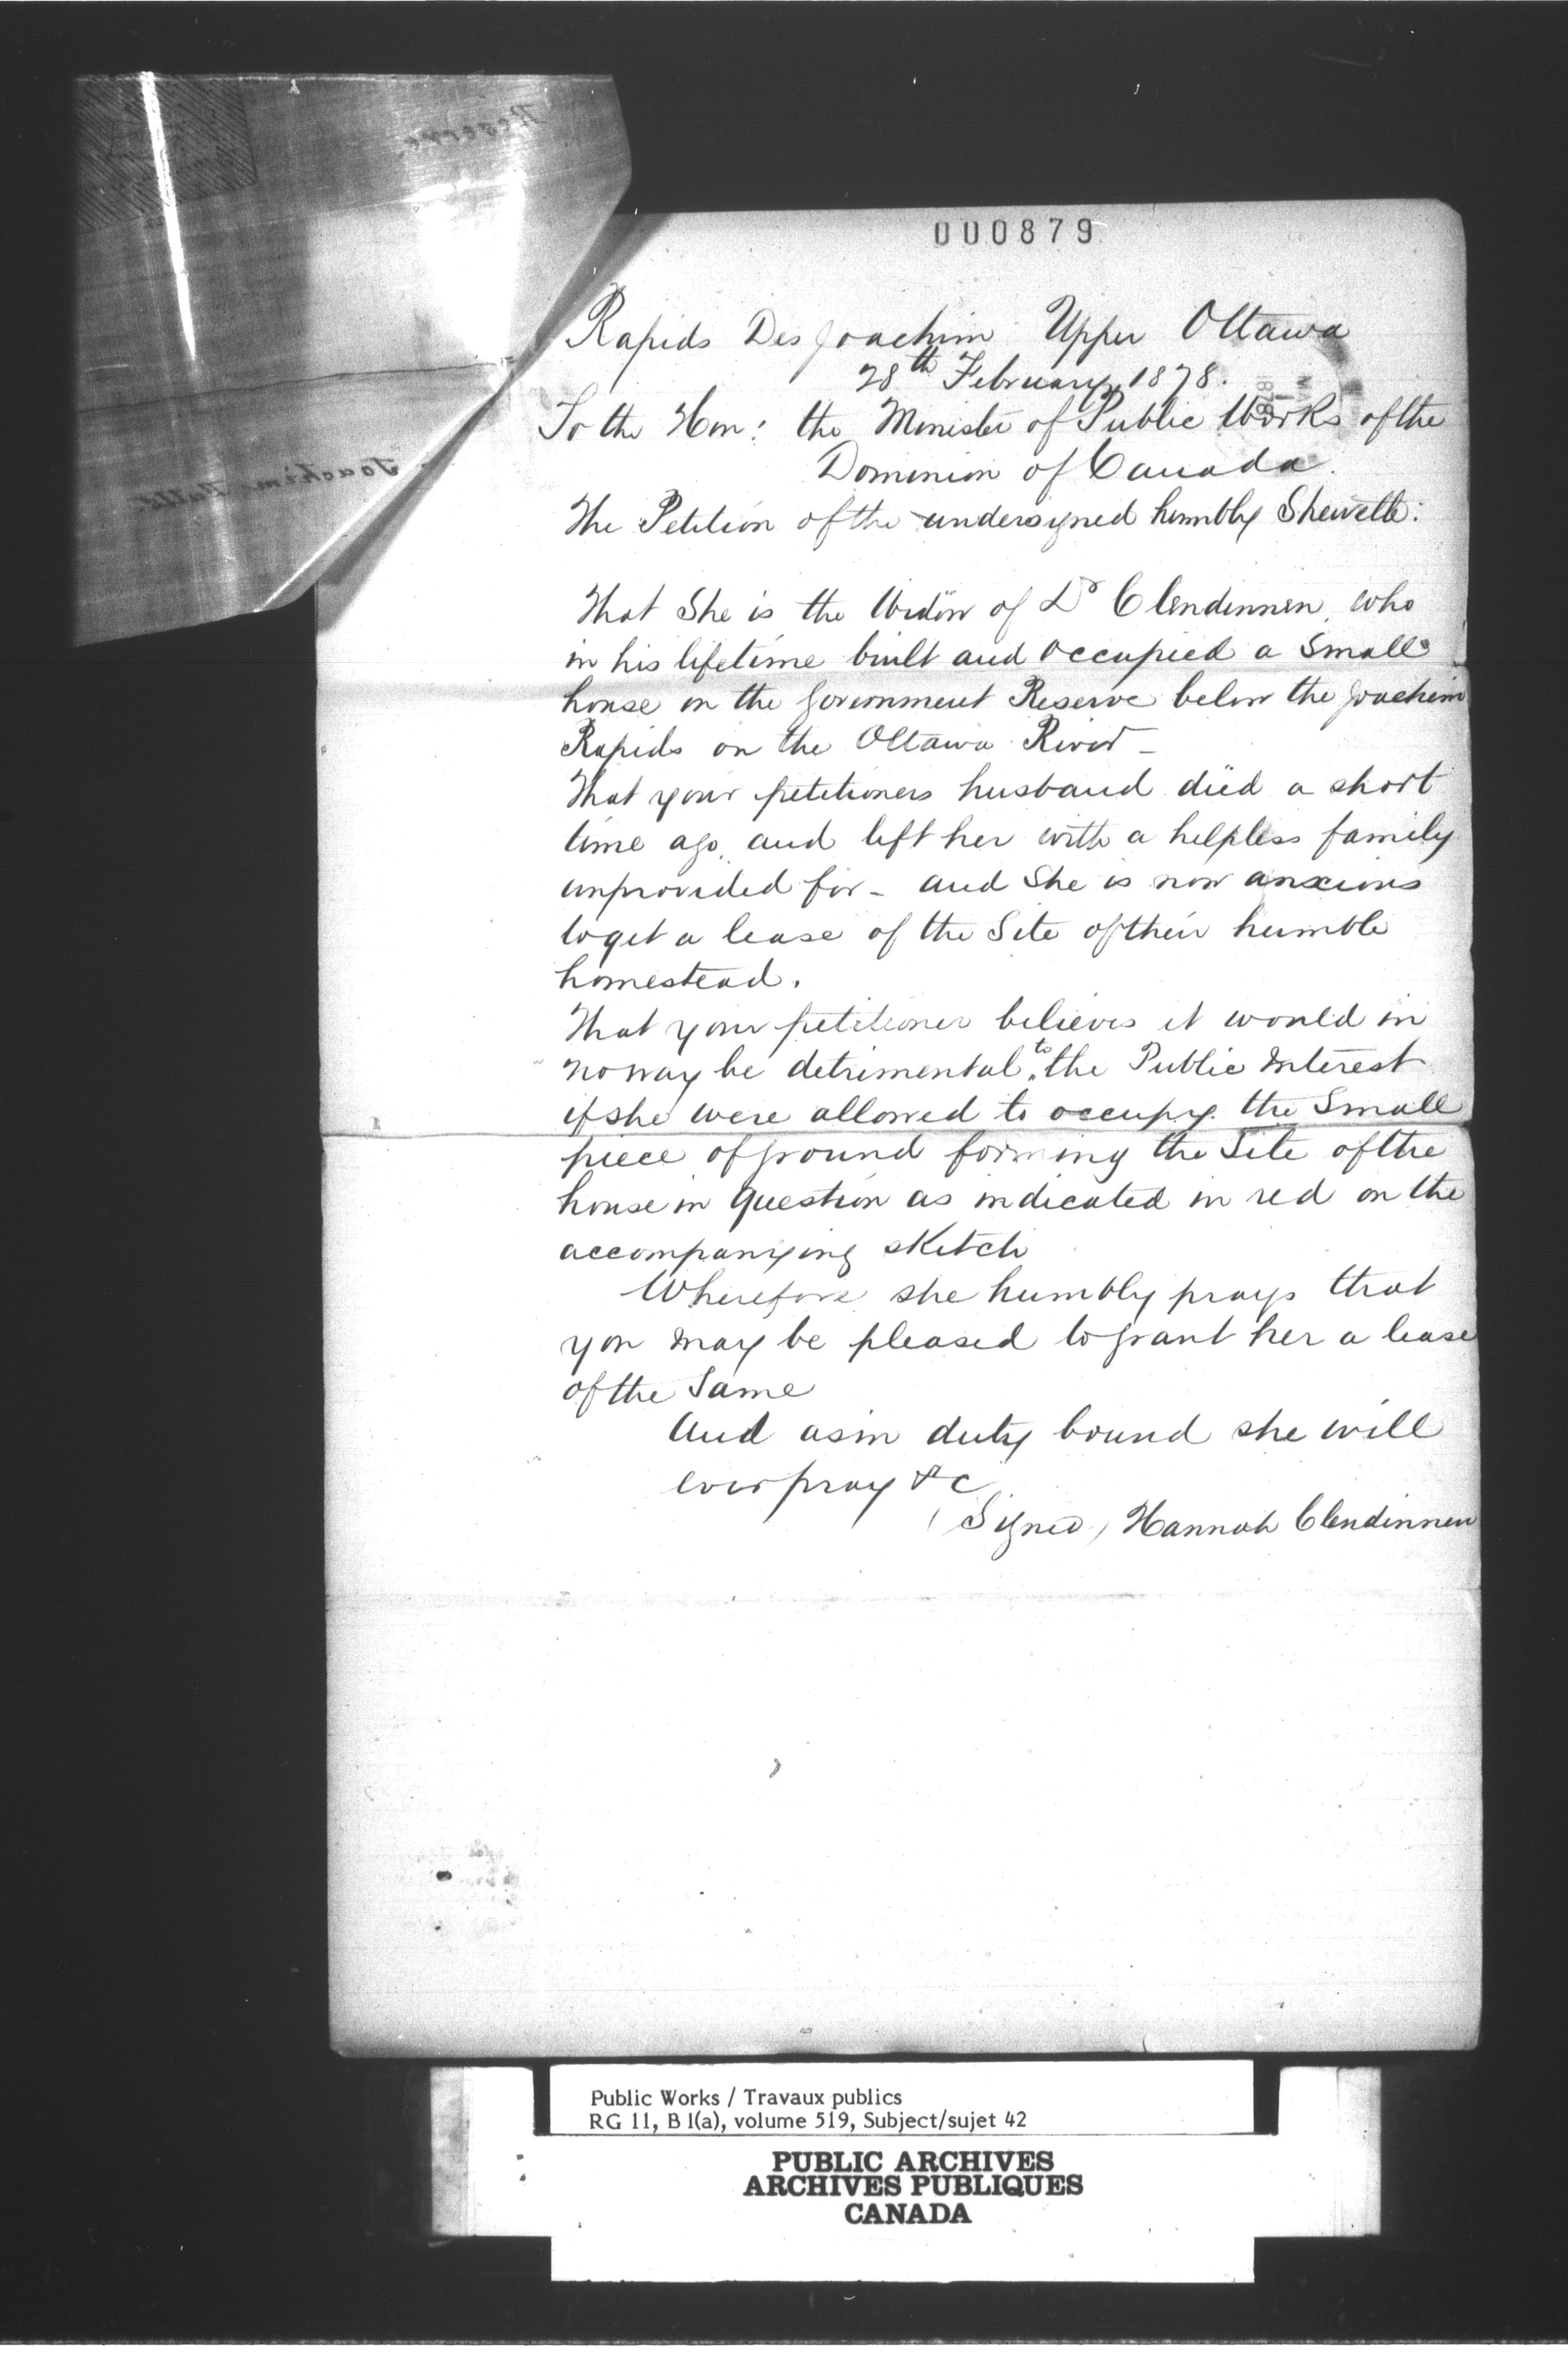 Reserve
Joachim Falls
000879
Rapids Des Joachim Upper Ottawa
28th February 1878.
To the Hon: the Minister of Public Works of the
Dominion of Canada.
The Petition of the undersigned humbly Sheweth:
That She is the Widow of Dr Clendinnen, who
in his lifetime built and occupied a Small
house on the Government Reserve below the Joachim
Rapids on the Ottawa River -
That your petitioners husband died a short
time ago, and left her with a helpless family
unprovided for - and She is now anxious
to get a lease of the Site of their humble
homestead.
That your petitioner believes it would in
no way be detrimental to the Public Interest
if she were allowed to occupy the Small
piece of ground forming the Site of the
house in question as indicated in red on the
accompanying sketch
Wherefore she humbly prays that
you may be pleased to grant her a lease
of the Same
And as in duty bound she will
ever pray &c
(Signed) Hannah Clendinnen
Public Works / Travaux publics
RG 11, B 1(a), volume 519, Subject/sujet 42
PUBLIC ARCHIVES
ARCHIVES PUBLIQUES
CANADA